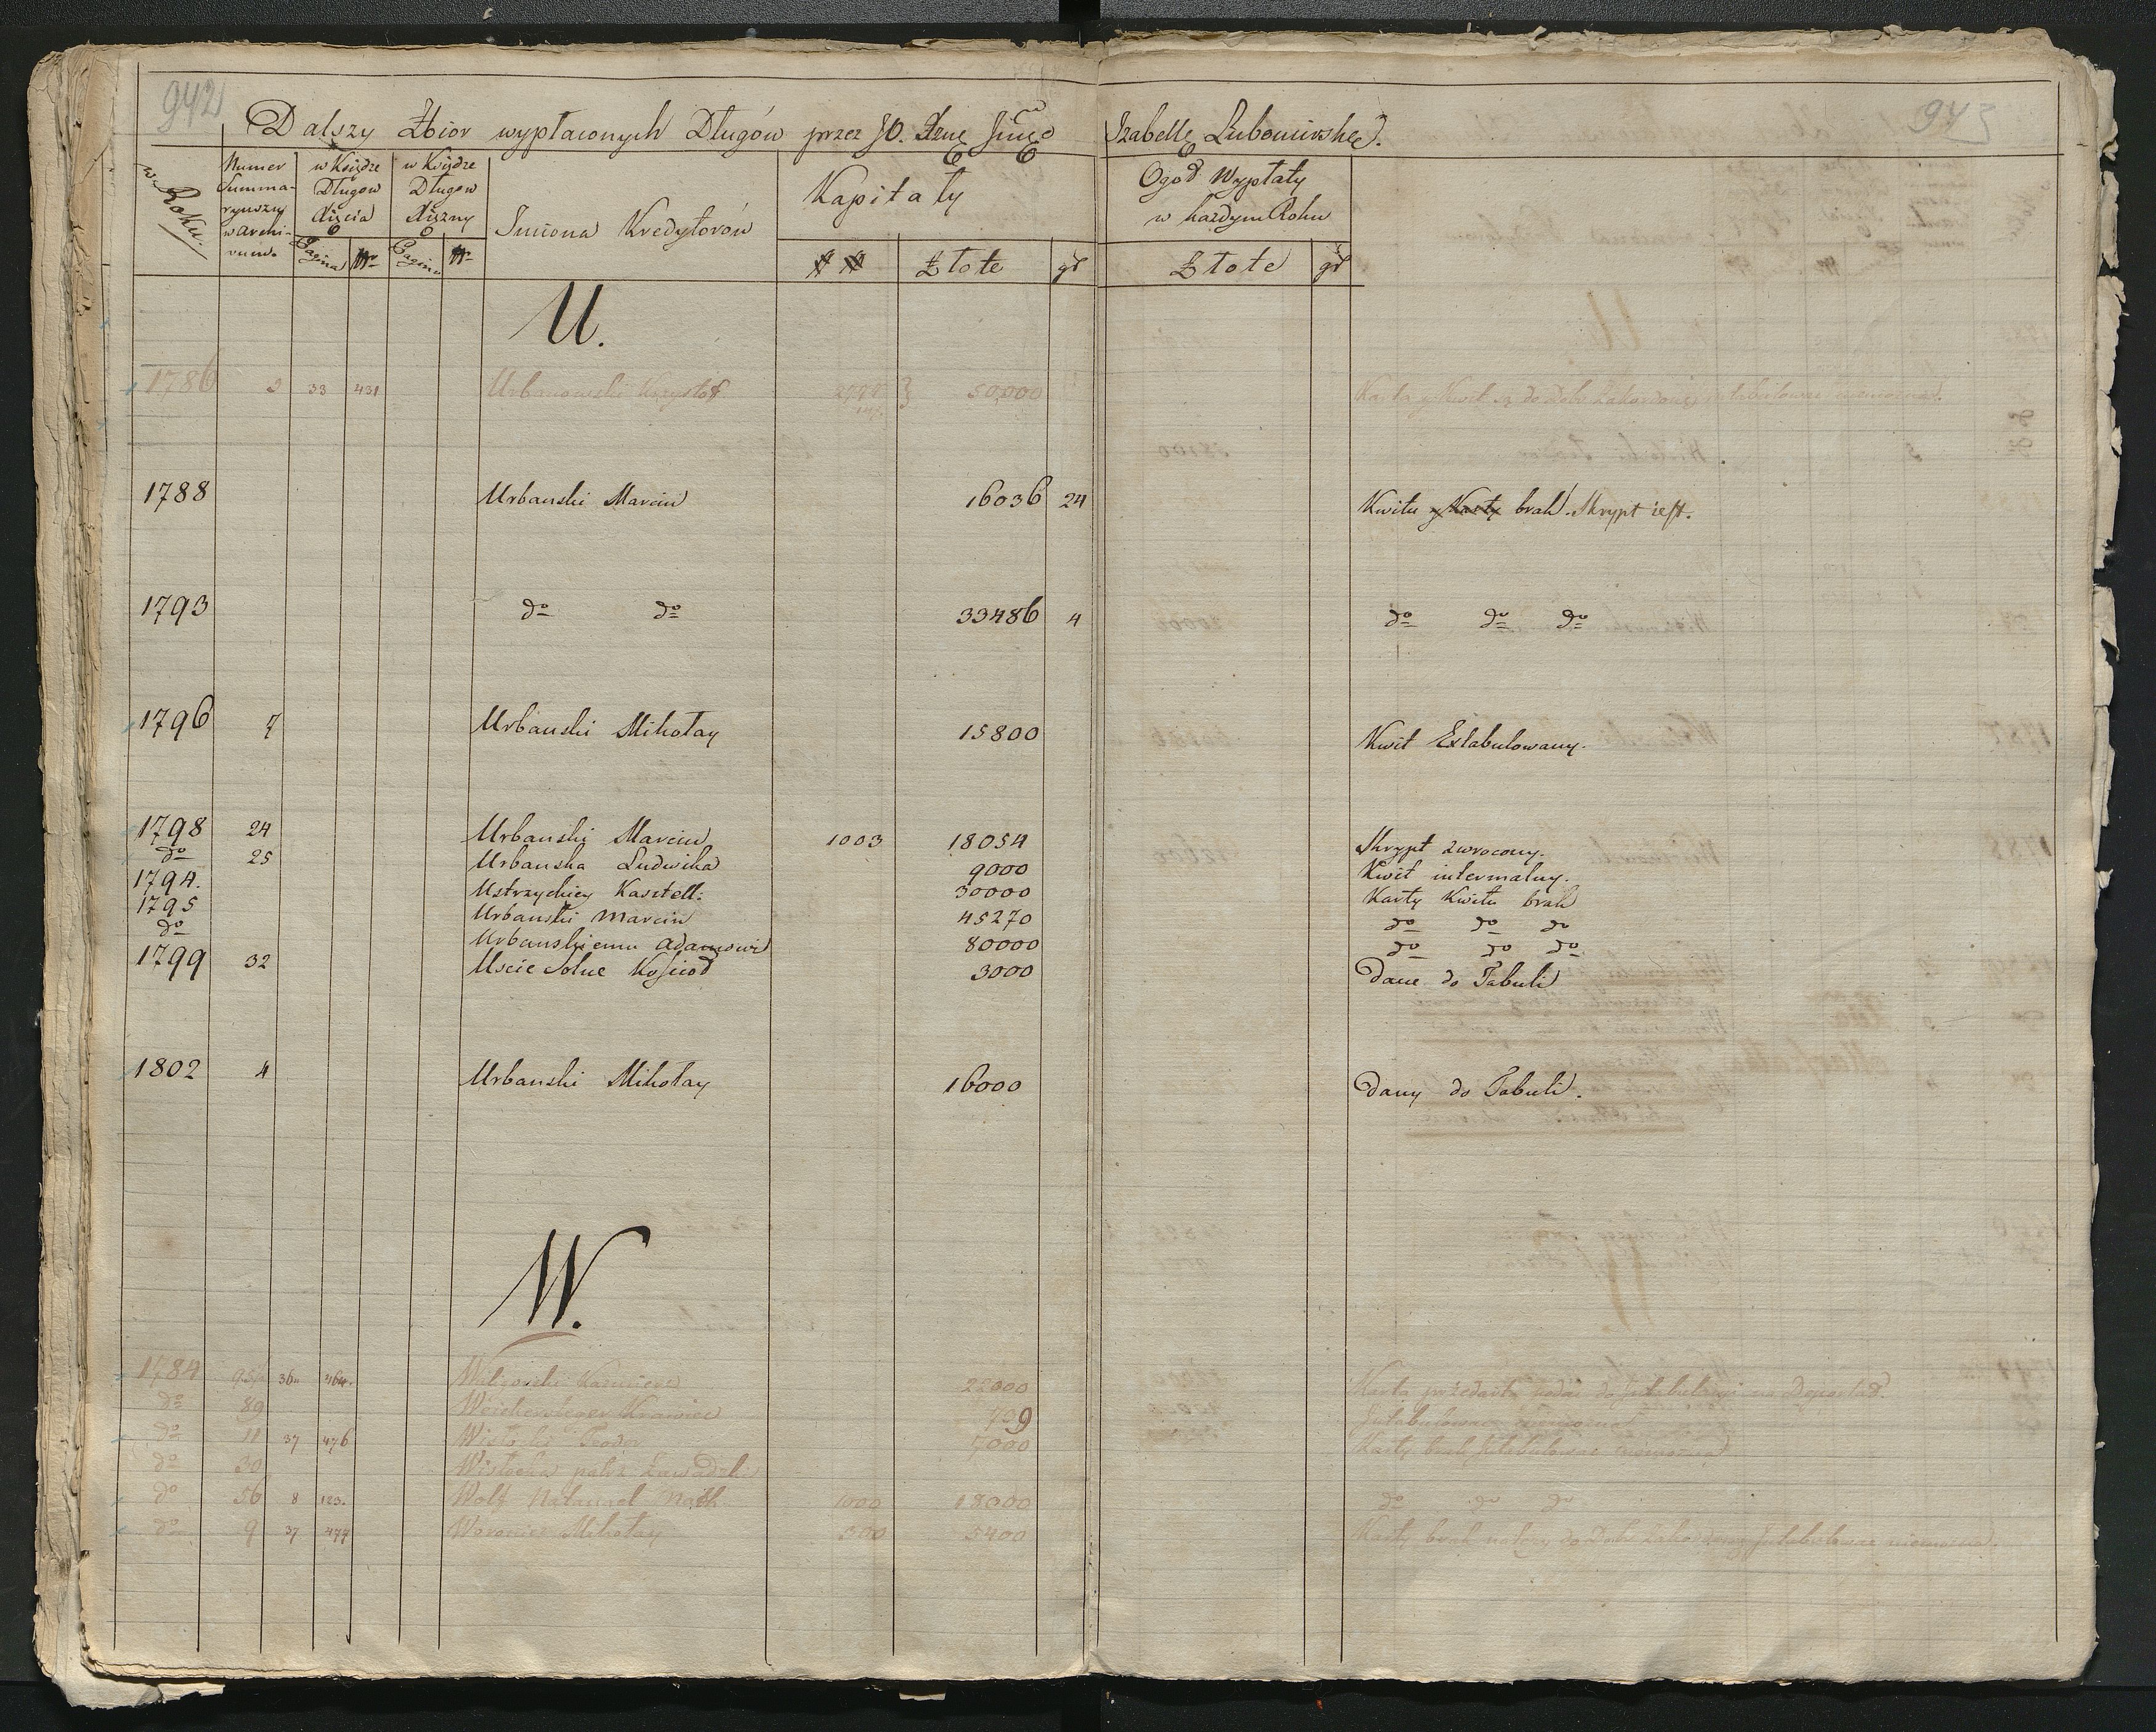 942
943
Dalszy Zbior wypłaconych Długów przez JO. Izabellę Lubomirskę.
w Roku.
Numer Summaryuszy w Archivum.
w Księdze Długów Xięcia
Pagina Nr
w Księdze Długow Xiężny
Pagina Nr
Imiona Kredytorów
Kapitały
Złote gr
Ogoł Wypłaty w każdym Roku
Złote gr
U.
1786 2 33 431 Urbanowski Krzysztof 50,000 Karta y Kwit są do Dobr
1788 Urbanski Marcin 16036 24 Kwitu y Karty brak. Skrypt iest.
1793 do do 33486 4 do do do
1796 7 Urbanski Mikołay 15800 Kwit Extabulowany.
1798 24 Urbanski Marcin 1003 18054 Skrypt zwrocony.
do 25 Urbanska Ludwika 9000 Kwit intermalny.
1794. Ustrzyckiey Kasztell: 30000 Karty Kwitu brak
1795 Urbanski Marcin 45270 do do do
do Urbanskiemu Adamowi 80000 do do do
1799 32 Uscie Solne Koscioł 3000 Dane do Tabuli
1802 4 Urbanski Mikołay 16000 Dany do Tabuli.
W.
1784 36 464. Kazimierz 22000 Karta
do 89 Krawiec 709 Intabulować niemożna
do 11 37 476 Wisłocki Teodor 7000 Karty brak Intabulować niemożna
do 30 Wisłocka
do 56 8 123. Wolf Natanael 1000 18000 do do do
do 9 37 477 Woronicz Mikołay 300 5400 Karty brak należy do Dobr Intabulować niemożna.